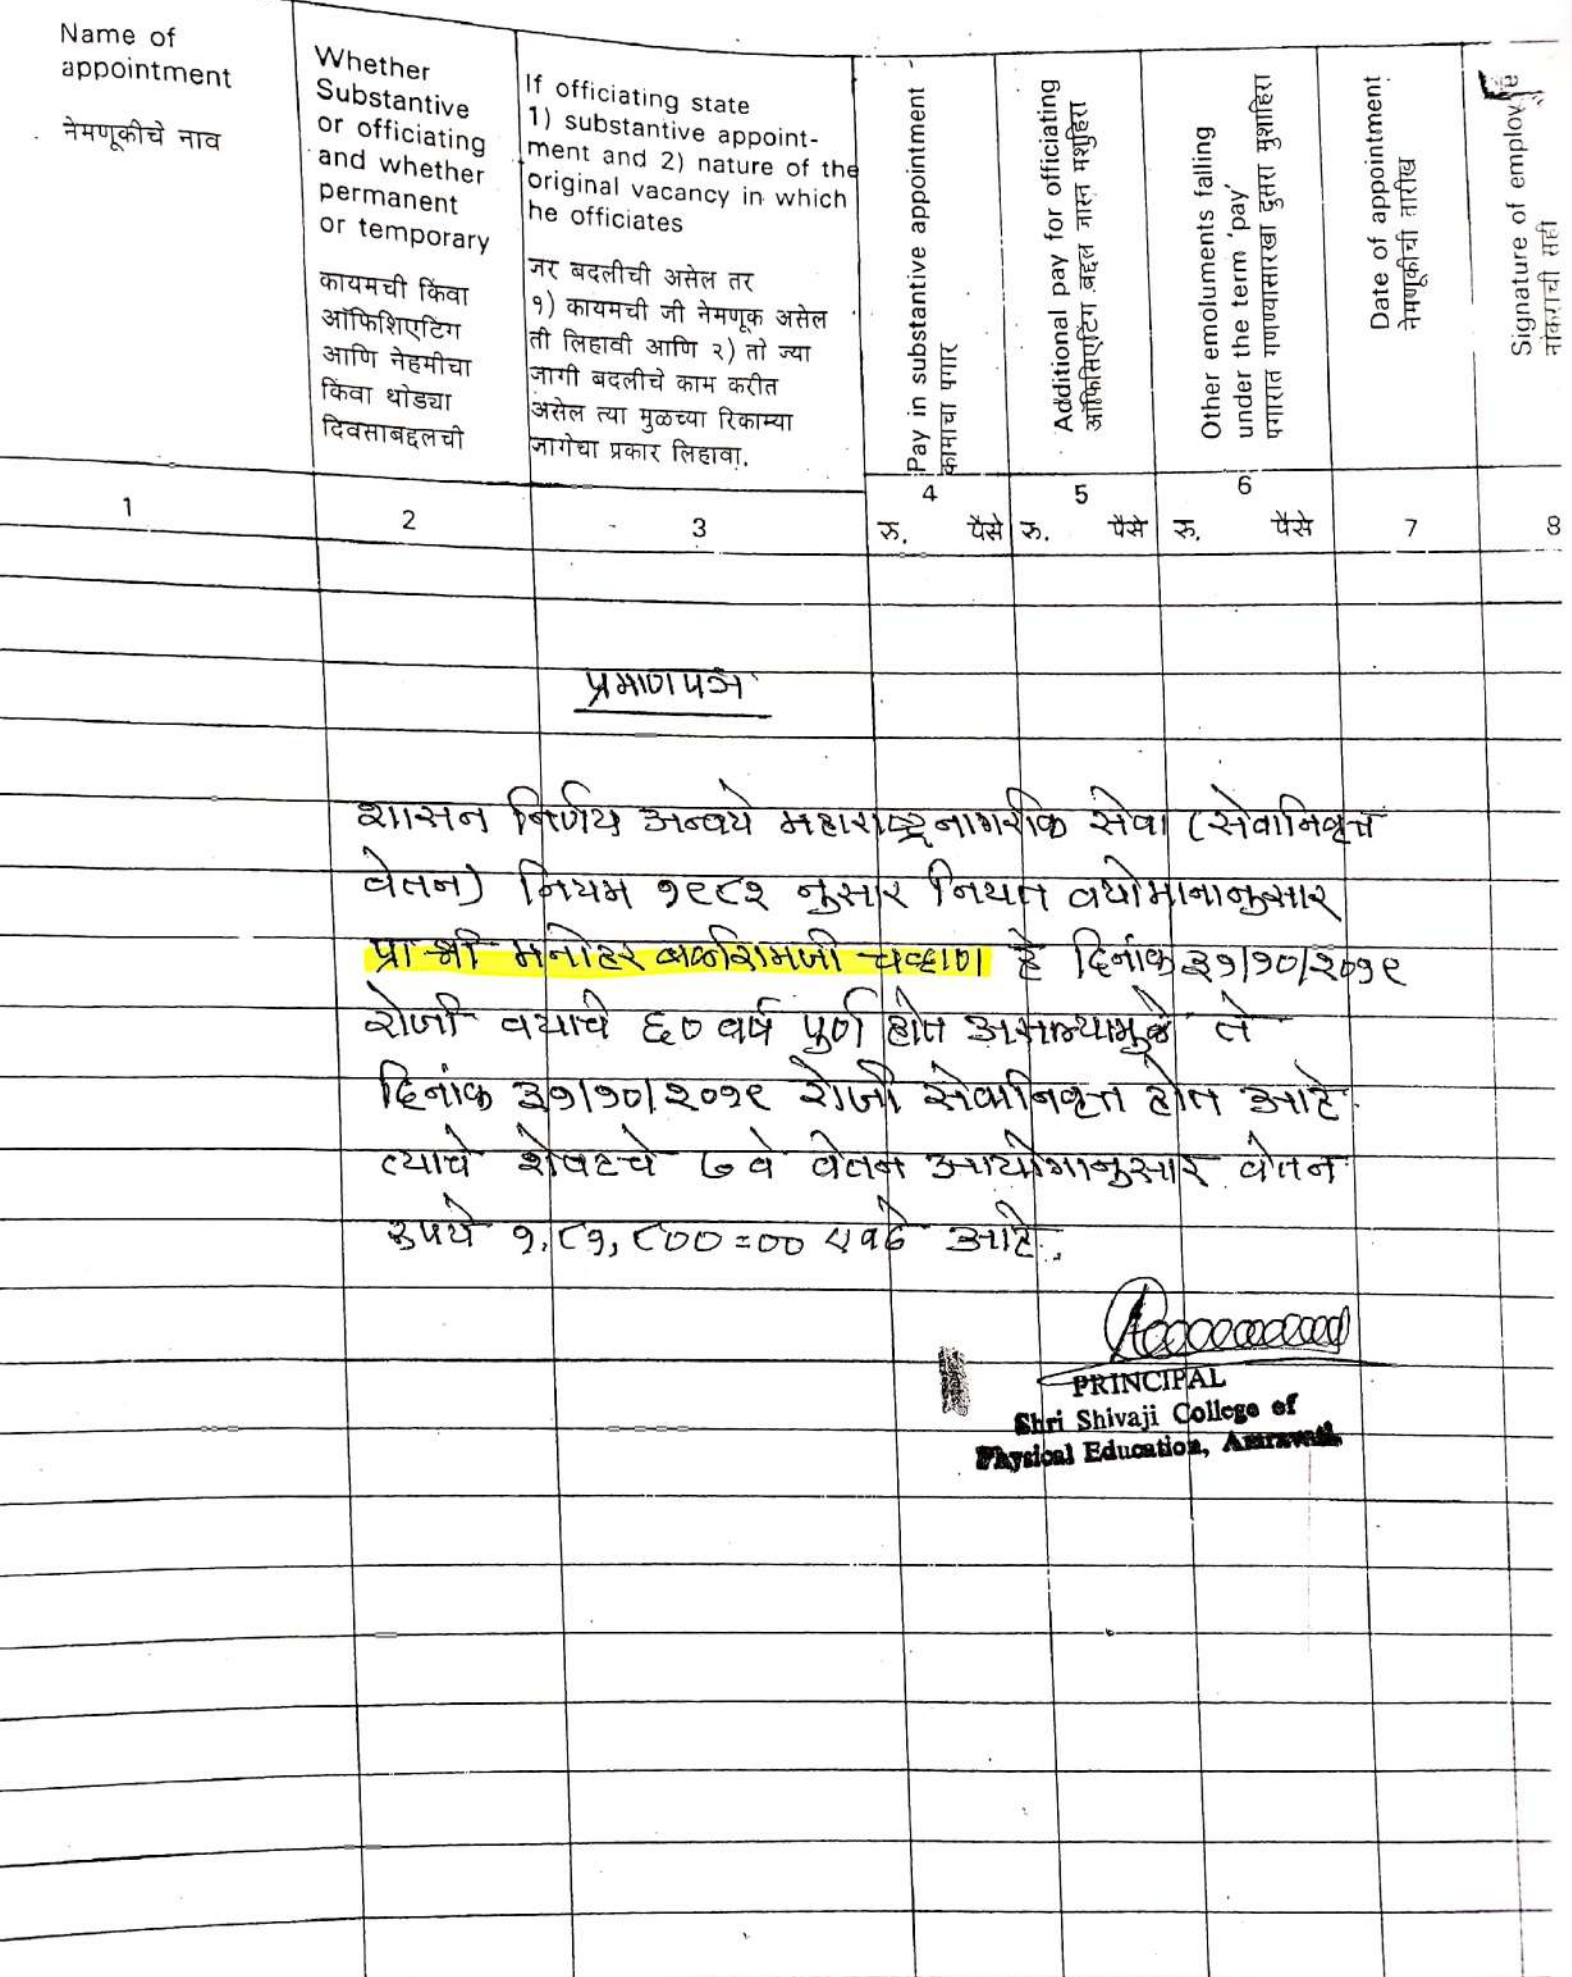 Name of
appointment
नेमणूकीचे नाव
Whether
Substantive
or officiating
and whether
permanent
or temporary
कायमची किंवा
ऑफिशिएटिंग
आणि नेहमीचा
किंवा थोड्या
दिवसाबद्दलची
If officiating state
1) substantive appoint-
ment and 2) nature of the
original vacancy in which
he officiates
जर बदलीची असेल तर
१) कायमची जी नेमणूक असेल
ती लिहावी आणि २) तो ज्या
जागी बदलीचे काम करीत
असेल त्या मुळच्या रिकाम्या
जागेचा प्रकार लिहावा.
Pay in substantive appointment
कामाचा पगार
Additional pay for officiating
ऑफिसिएटिंग बद्दल जास्त मशुहिरा
Other emoluments falling
under the term 'pay'
पगारात गणण्यासारखा दुसरा मुशाहिरा
Date of appointment
नेमणूकीची तारीख
Signature of employ
नोकराची सही
1 2 3 4 5 6 7 8
रु. पैसे रु. पैसे रु. पैसे
प्रमाणपत्र
शासन निर्णय अन्वये महाराष्ट्र नागरीक सेवा (सेवानिवृत्त
वेतन) नियम १९८२ नुसार नियत वयोमानानुसार
प्रा श्री मनोहर बळीरामजी चव्हाण हे दिनांक ३१/१०/२०१९
रोजी वयाचे ६० वर्ष पुर्ण होत असल्यामुळे ते
दिनांक ३१/१०/२०१९ रोजी सेवानिवृत्त होत आहे.
त्याचे शेवटचे ७ वे वेतन आयोगानुसार वेतन
रुपये १,८१,८००=०० आहे.
PRINCIPAL
Shri Shivaji College of
Physical Education, Amravati.